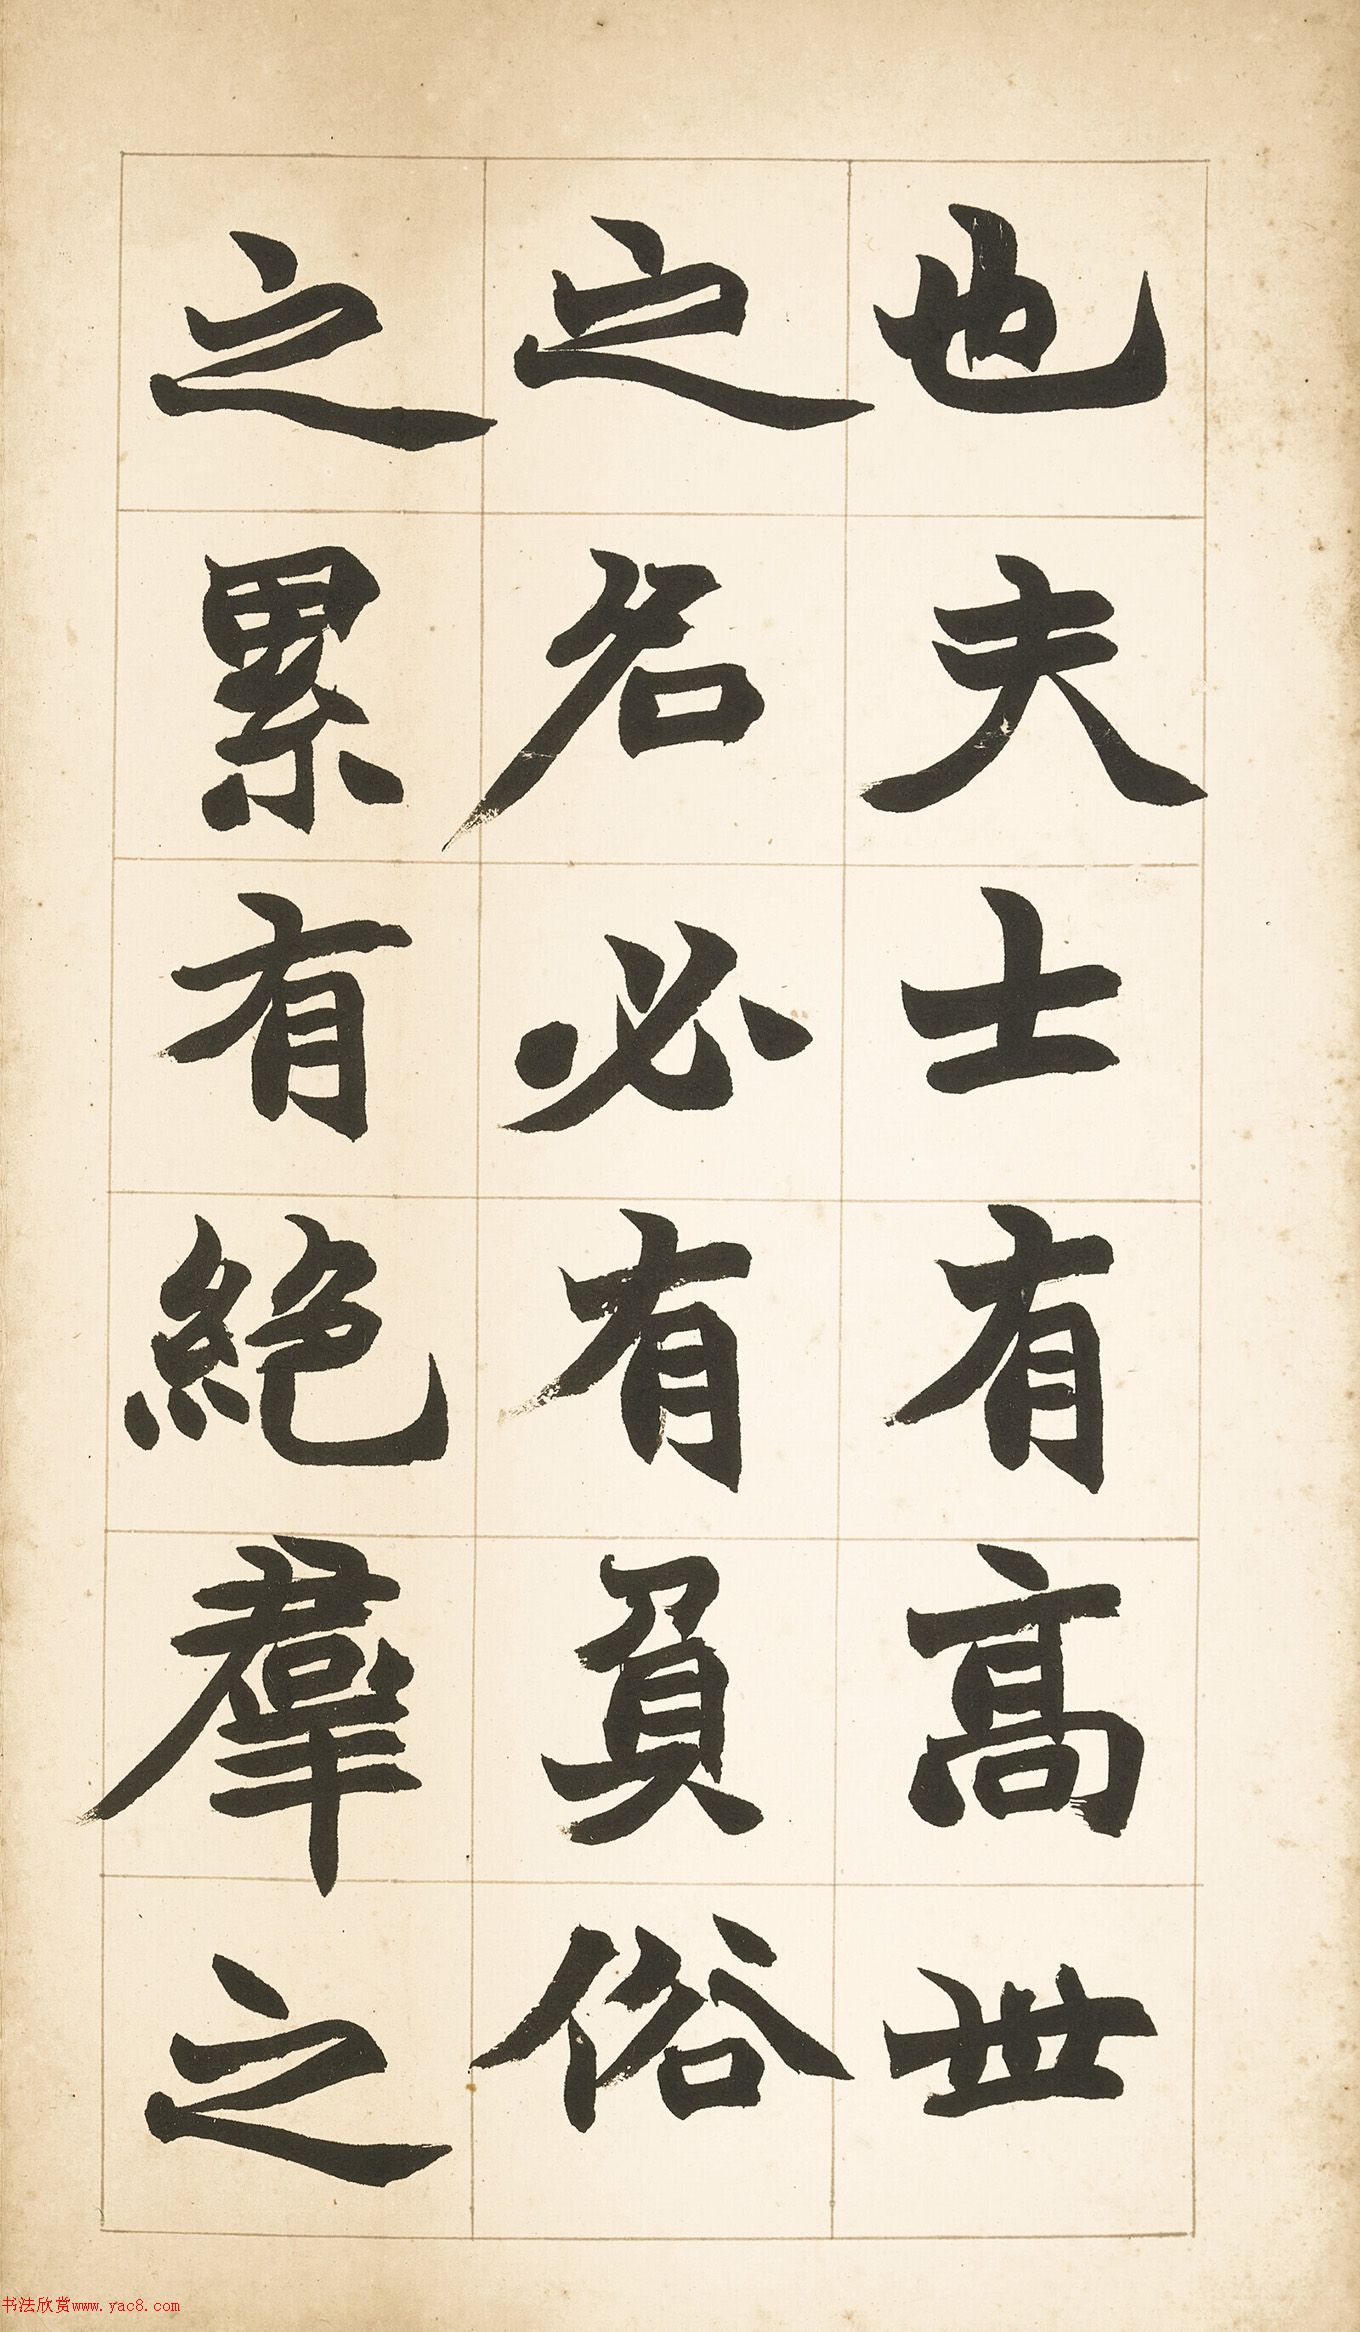 也夫士有高世
之名必有負俗
之累有絶羣之
书法欣赏www.yac8.com